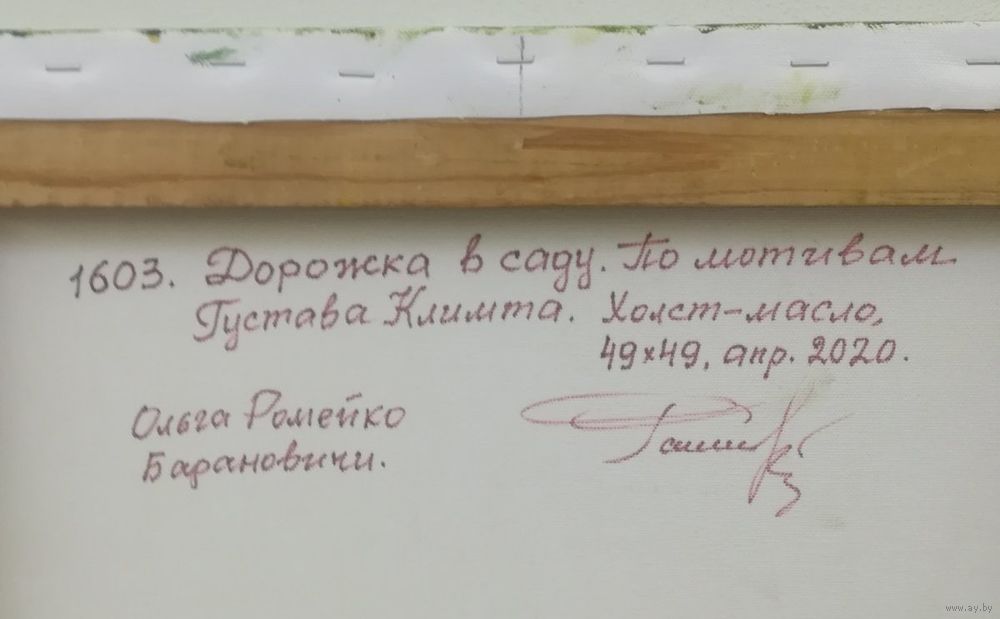 1603. Дорожка в саду. По мотивам
Густава Климта. Холст-масло,
49×49, апр. 2020.
Ольга Ромейко
Барановичи.
www.ay.by